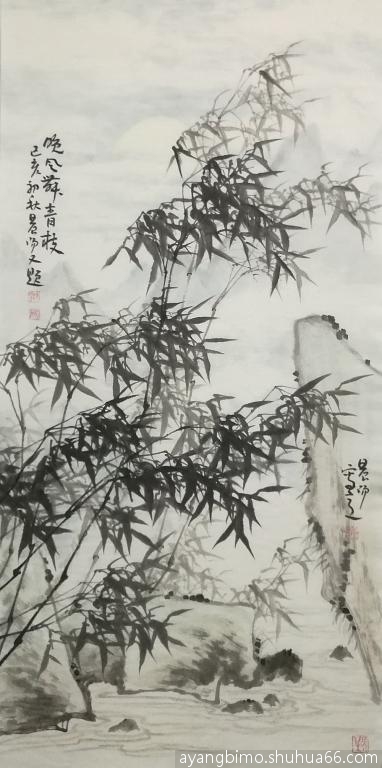 晚风舞青枝
己亥初秋晨师又题
晨师
ayangbimo.shuhua66.com